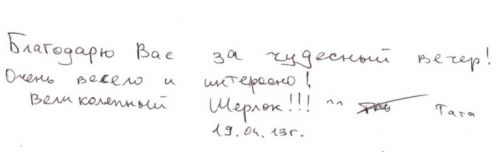 Благодарю Вас за чудесный вечер!
Очень весело и интересно!
Великолепный Шерлок!!! ^^ Тата
19.04.13г.